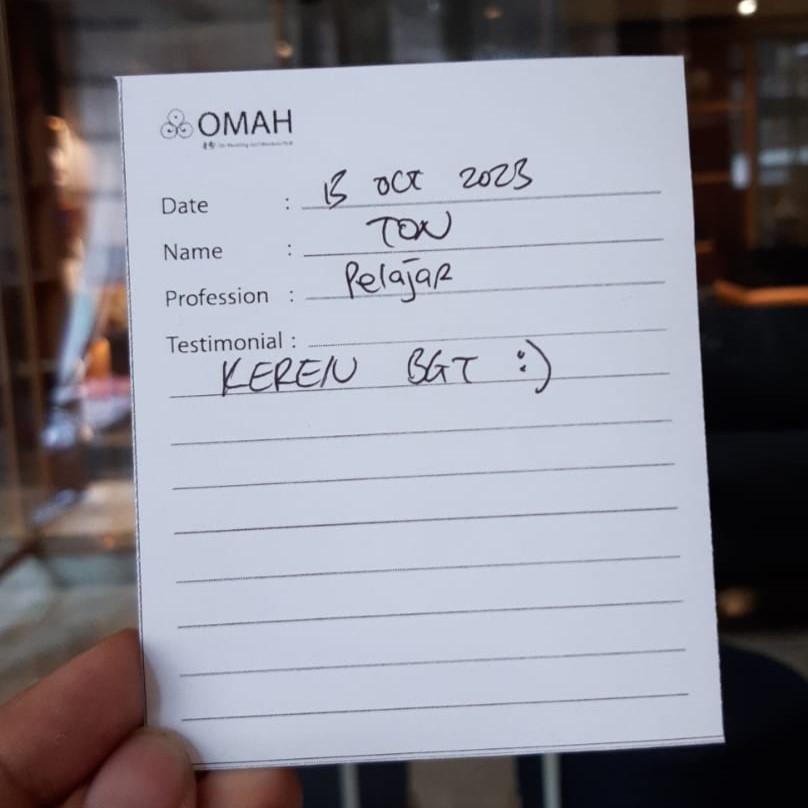 OMAH
Date : 13 OCT 2023
Name : TON
Profession : Pelajar
Testimonial :
KEREN BGT :)